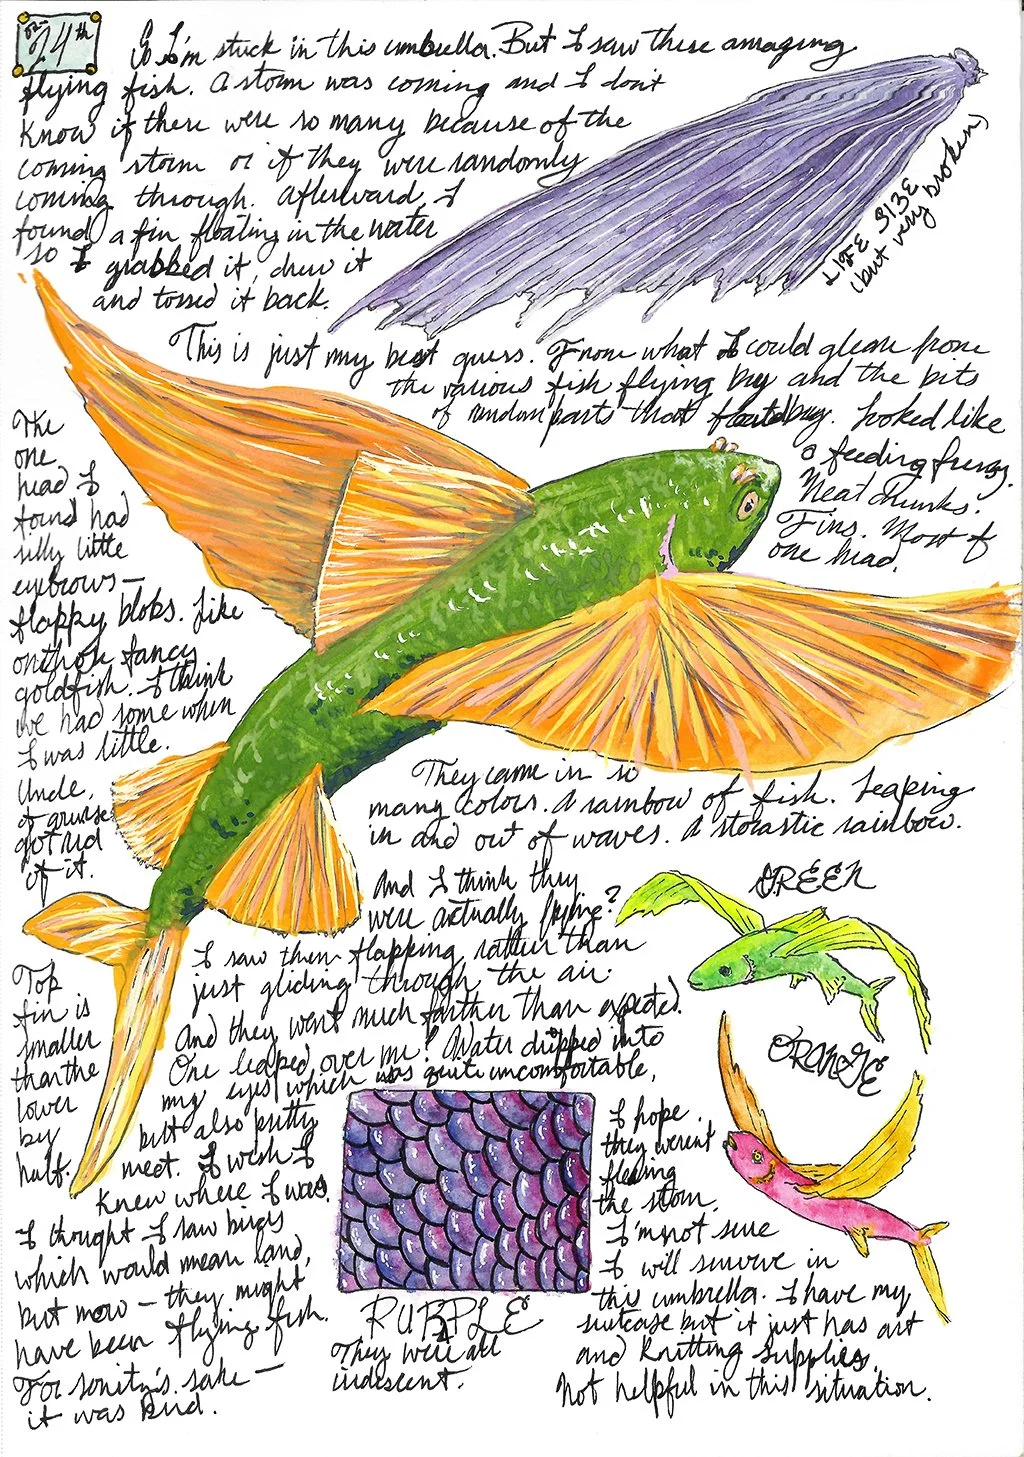 24th
So I'm stuck in this umbrella. But I saw these amazing
flying fish. A storm was coming and I don't
know if there were so many because of the
coming storm or if they were randomly
coming through. Afterward, I
found a fin floating in the water
so I grabbed it, drew it
and tossed it back.
LIFE SIZE
(but very broken)
This is just my best guess. From what I could glean from
the various fish flying by and the bits
of random parts that floated by. Looked like
a feeding frenzy.
Meat chunks.
Fins. Most of
one head.
The
one
head I
found had
silly little
eyebrows—
flappy blobs. Like
on those fancy
goldfish. I think
we had some when
I was little.
Uncle,
of course
got rid
of it.
They came in so
many colors. A rainbow of fish. Leaping
in and out of waves. A stocastic rainbow.
And I think they
were actually flying?
I saw them flapping rather than
just gliding through the air.
And they went much farther than expected.
One leaped over me! Water dripped into
my eyes which was quite uncomfortable,
but also pretty
neet. I wish I
knew where I was.
I thought I saw birds
which would mean land,
but now – they might
have been flying fish.
For sanity's sake —
it was bird.
Top
fin is
smaller
than the
lower
by
half.
GREEN
ORANGE
PURPLE
They were all
iridescent.
I hope
they weren't
fleeing
the storm.
I'm not sure
I will survive in
this umbrella. I have my
suitcase but it just has art
and knitting supplies.
Not helpful in this situation.